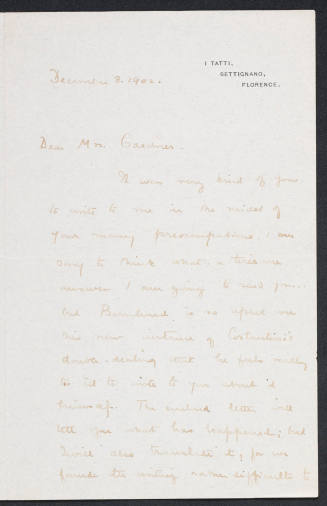 I TATTI,
SETTIGNANO,
FLORENCE.
December 3. 1902.
Dear Mrs. Gardner.
It was very kind of you
to write to me in the midst of
your many preoccupations. I am
sorry to think what a tiresome
answer I am going to send you.
But Bernhard is so upset over
this new instance of Costantini's
double-dealing that he feels
to to write to you about it
himself. The enclosed letter will
tell you what has happened; but
I will also translate it, for we
found the writing rather difficult to